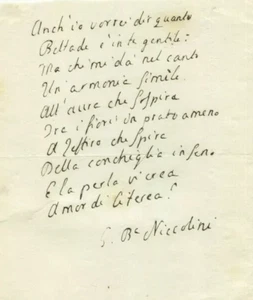 Anch'io vorrei dir quanto
Beltade è in te gentile:
Ma chi mi dà nel canto
Un armonia simile
All'aura che sospira
Tra i fiori un prato ameno
A Zeffiro che spira
Della conchiglia in seno
E la perla vi crea
Amor di Citerea!
G. Ba Niccolini